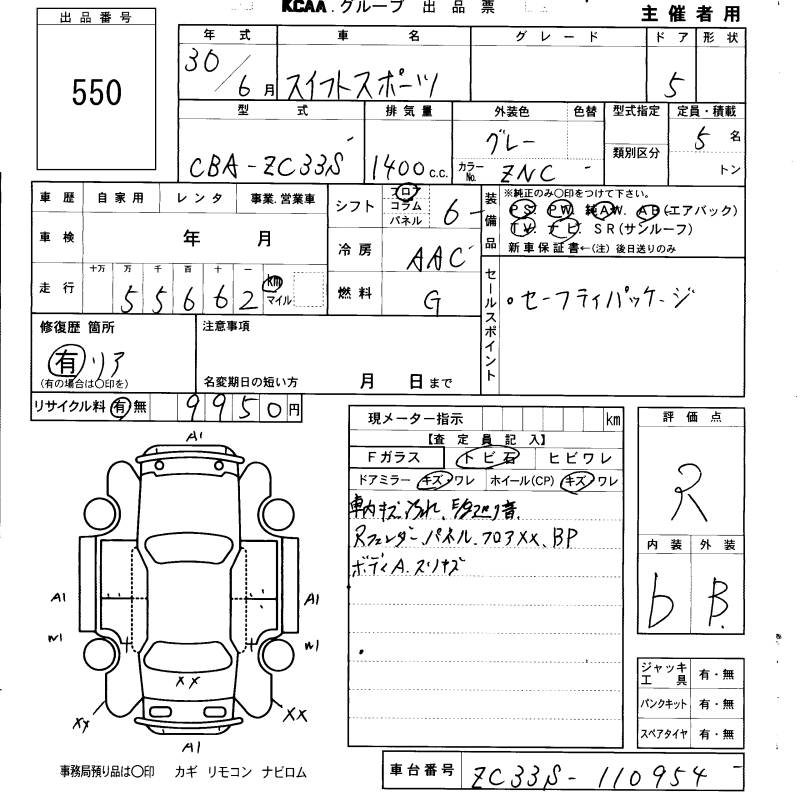 KCAA.グループ 出品票
主催者用
出品番号
550
年式 車名 グレード ドア 形状
30/6月 スイフトスポーツ 5
型式 排気量 外装色 色替 型式指定 定員・積載
CBA-ZC33S 1400c.c. グレー 5名
カラーNo. ZNC 類別区分 トン
車歴 自家用 レンタ 事業.営業車
車検 年 月
走行 十万 万 千 百 十 一
55662 km マイル
シフト フロ コラム パネル 6
冷房 AAC
燃料 G
装備品
※純正のみ〇印をつけて下さい。
PS. PW. 純AW. AB(エアバック)
TV. ナビ. SR(サンルーフ)
新車保証書←(注)後日送りのみ
セールスポイント
・セーフティパッケージ
修復歴 箇所
有 リア
(有の場合は〇印を)
注意事項
名変期日の短い方 月 日まで
リサイクル料 有 無 9950円
現メーター指示 km
【査定員記入】
Fガラス トビ石 ヒビワレ
ドアミラー キズ・ワレ ホイール(CP) キズ・ワレ
車内キズ汚れ、
Rフェンダー、パネル、フロアXX、BP
ボディA、スリキズ
評価点
R
内装 外装
b B
ジャッキ工具 有・無
パンクキット 有・無
スペアタイヤ 有・無
A1
A1 A1
W1 W1
XX
XX XX
A1
事務局預り品は〇印 カギ リモコン ナビロム
車台番号 ZC33S-110954